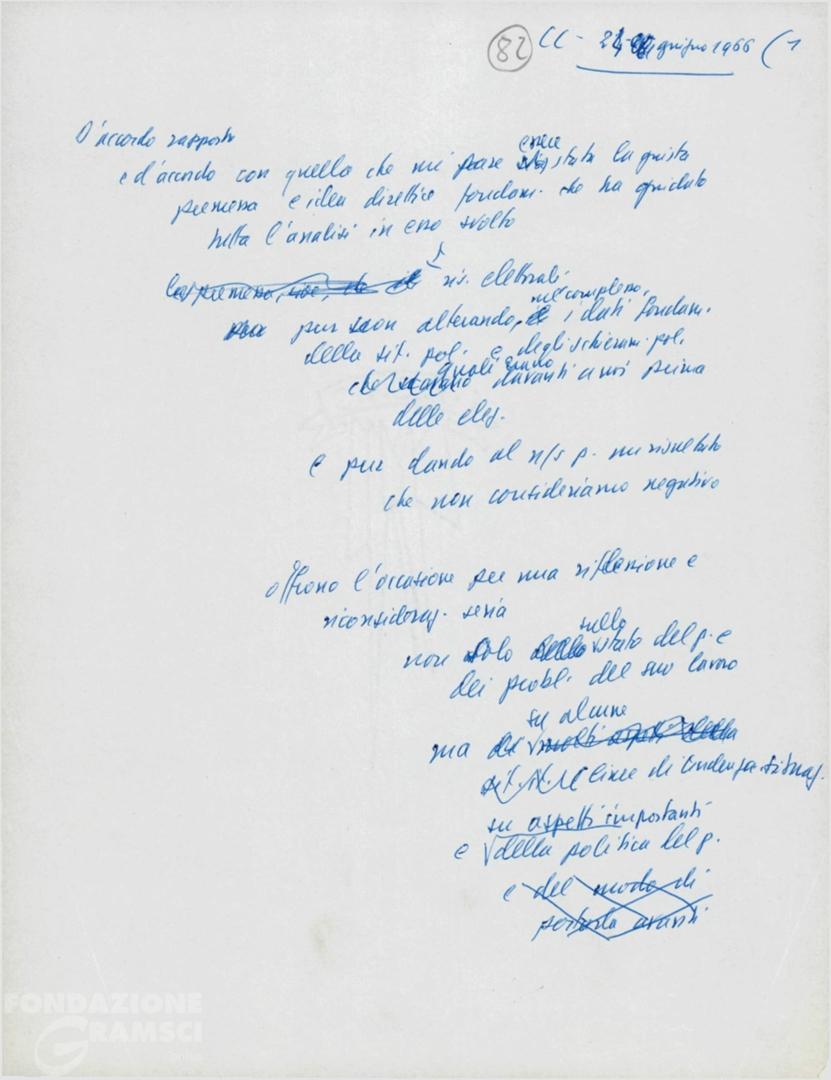 82 CC - giugno 1966 (1
D'accordo rapporto
e d'accordo con quello che mi pare essere stata la giusta
premessa e idea direttice fondam. che ha guidato
tutta l'analisi in esso svolta
la premessa, cioè, che il ris. elettorali
pur non alterando, nel complesso, i dati fondam.
della sit. pol. e degli schieram. pol.
quali erano davanti a noi prima
delle elez.
e pur dando al n/s p. un risultato
che non consideriamo negativo
offrono l'occasione per una riflessione e
riconsideraz. seria
non solo sullo stato del p. e
dei probl. del suo lavoro
ma su alcune
linee di tendenza situaz.
su aspetti importanti
e della politica del p.
e del modo di
portarla avanti
FONDAZIONE
GRAMSCI